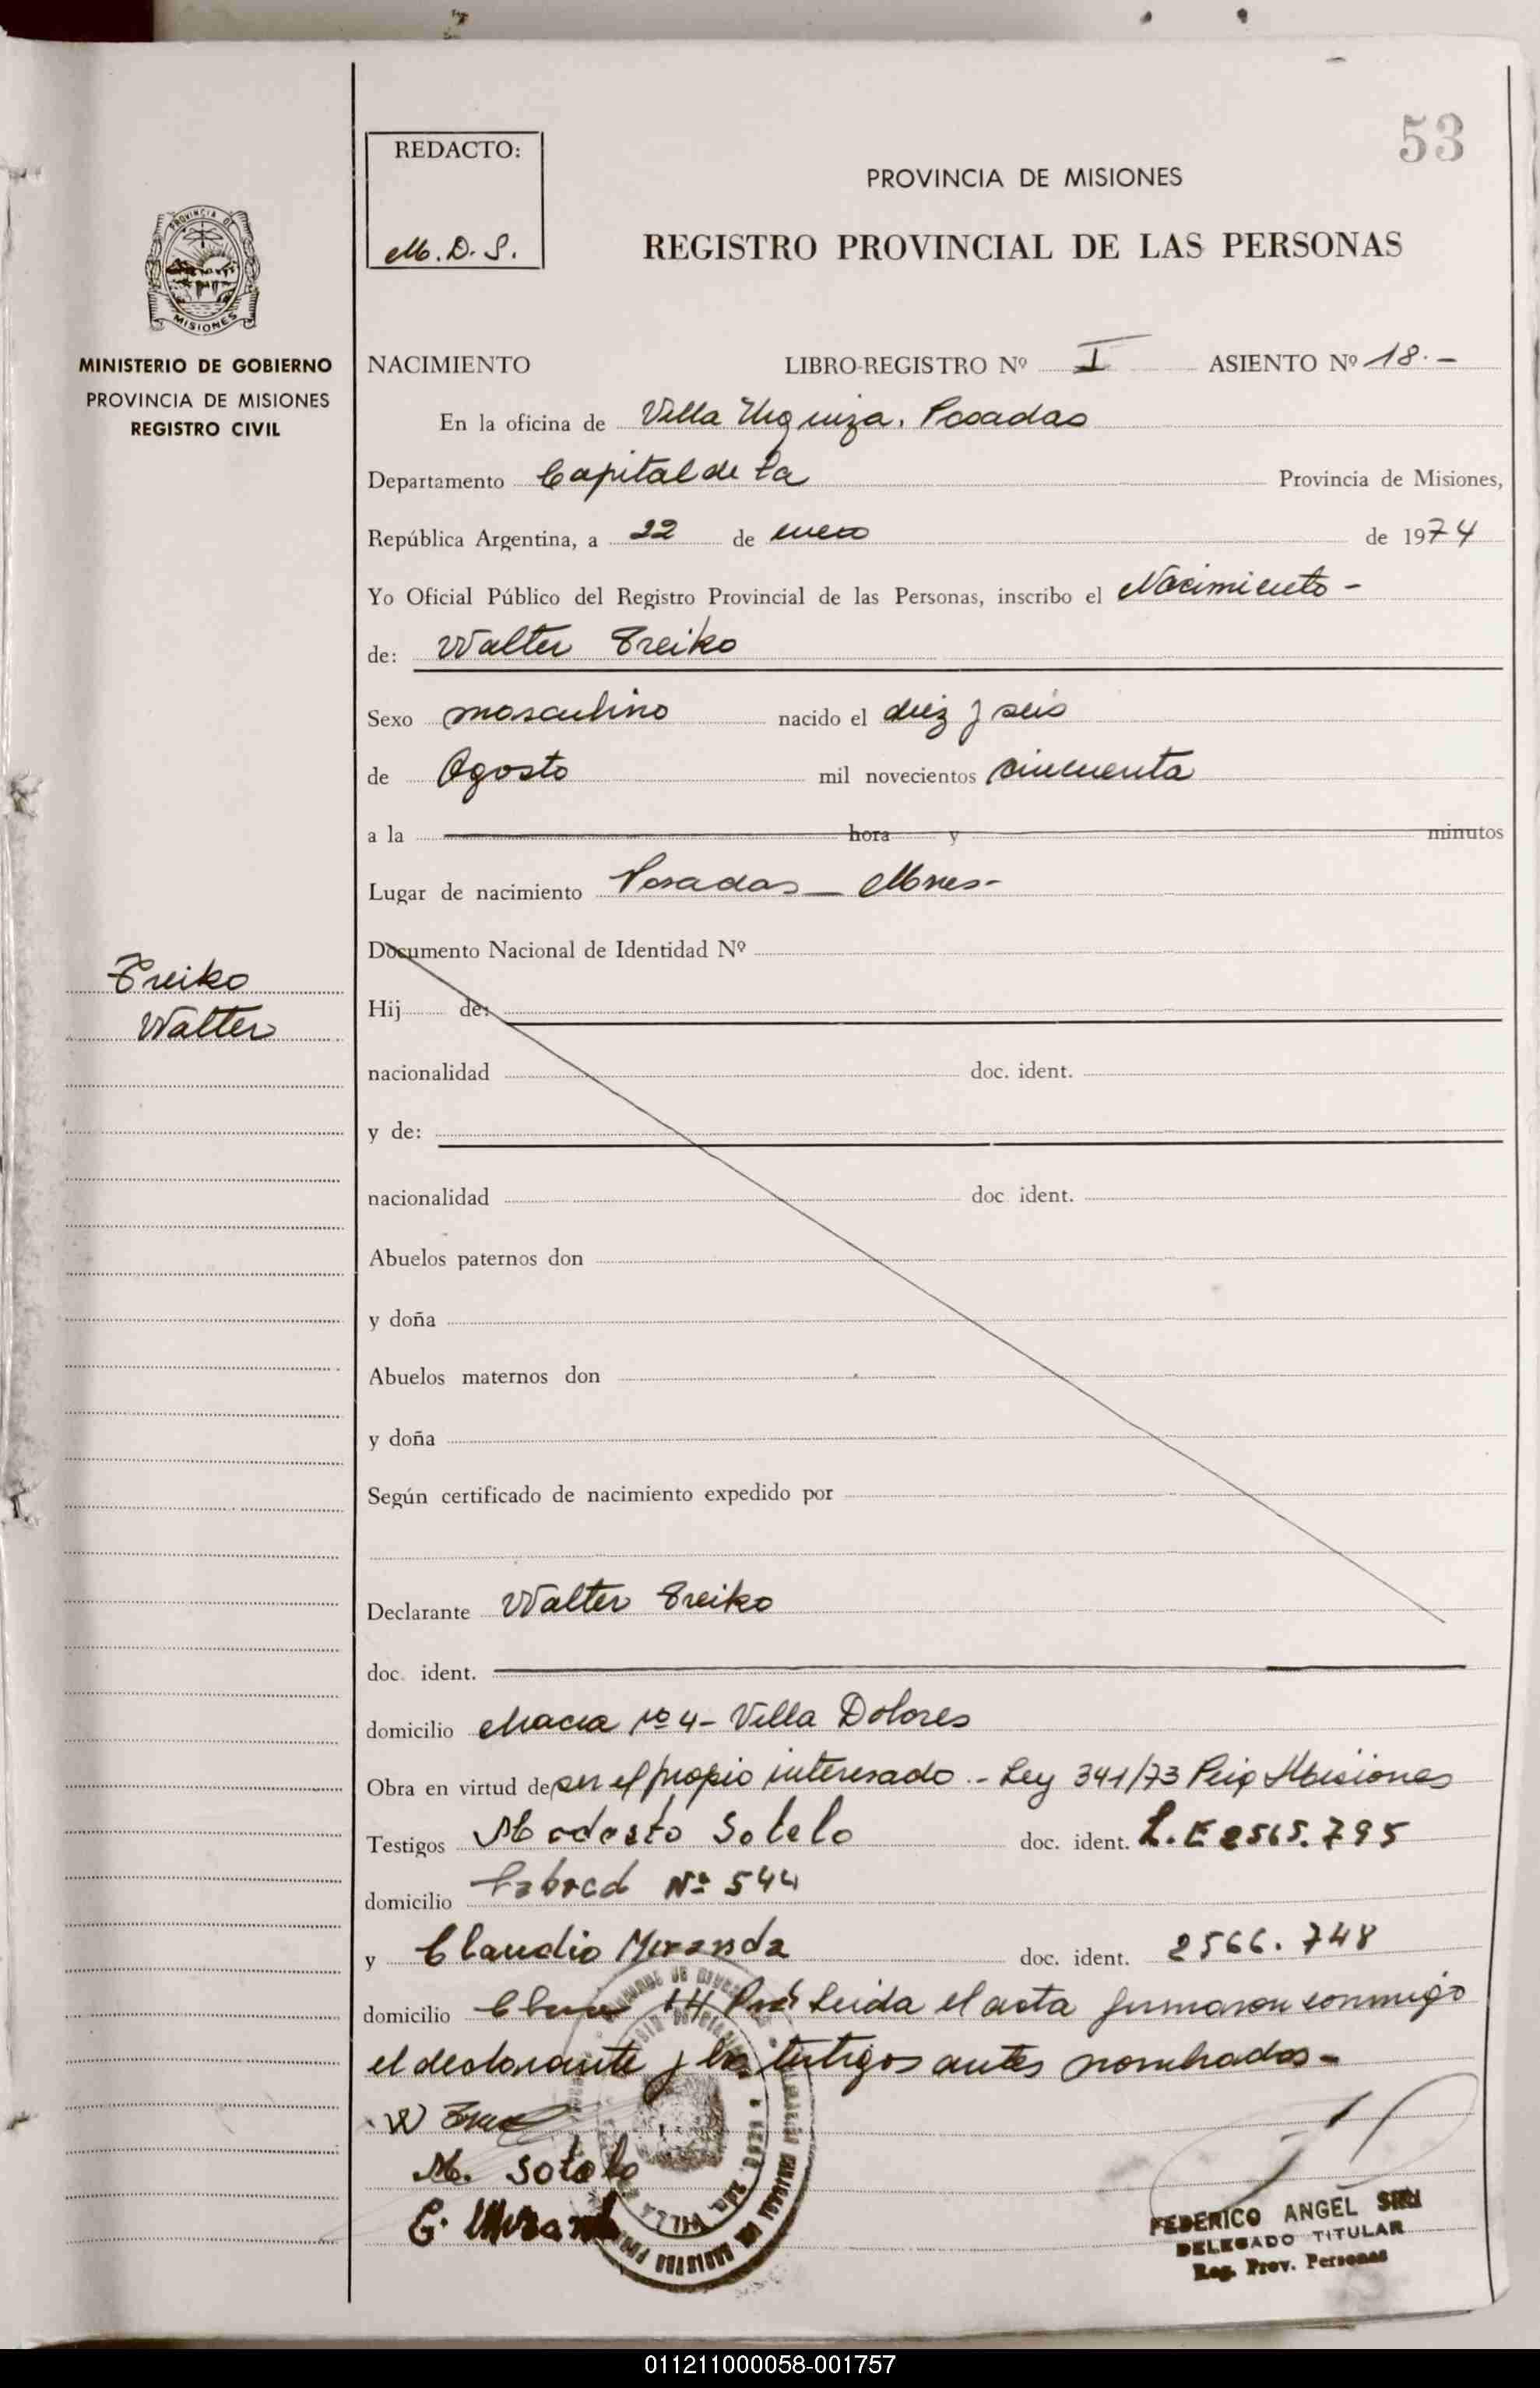 53
REDACTO:
M. D. S.
PROVINCIA DE MISIONES
REGISTRO PROVINCIAL DE LAS PERSONAS
PROVINCIA DE
MISIONES
MINISTERIO DE GOBIERNO
PROVINCIA DE MISIONES
REGISTRO CIVIL
NACIMIENTO LIBRO-REGISTRO Nº I ASIENTO Nº 18.-
En la oficina de Villa Urquiza. Posadas
Departamento Capital de la Provincia de Misiones,
República Argentina, a 22 de enero de 1974
Yo Oficial Público del Registro Provincial de las Personas, inscribo el Nacimiento -
de: Walter Treiko
Sexo masculino nacido el diez y seis
de Agosto mil novecientos cincuenta
a la hora y minutos
Lugar de nacimiento Posadas - Mnes-
Documento Nacional de Identidad Nº
Treiko
Walter
Hij de:
nacionalidad doc. ident.
y de:
nacionalidad doc ident.
Abuelos paternos don
y doña
Abuelos maternos don
y doña
Según certificado de nacimiento expedido por
Declarante Walter Treiko
doc. ident.
domicilio Chacra Nº 4- Villa Dolores
Obra en virtud de ser el propio interesado.- Ley 341/73 Misiones
Testigos Modesto Sotelo doc. ident. L.E 2565.795
domicilio Cabred Nº 544
y Claudio Miranda doc. ident. 2566.748
domicilio 14 Leida el acta firmaron conmigo
el declarante y los testigos antes nombrados-
W
M. Sotelo
C. Miranda
FEDERICO ANGEL
DELEGADO TITULAR
Reg. Prov. Personas
011211000058-001757